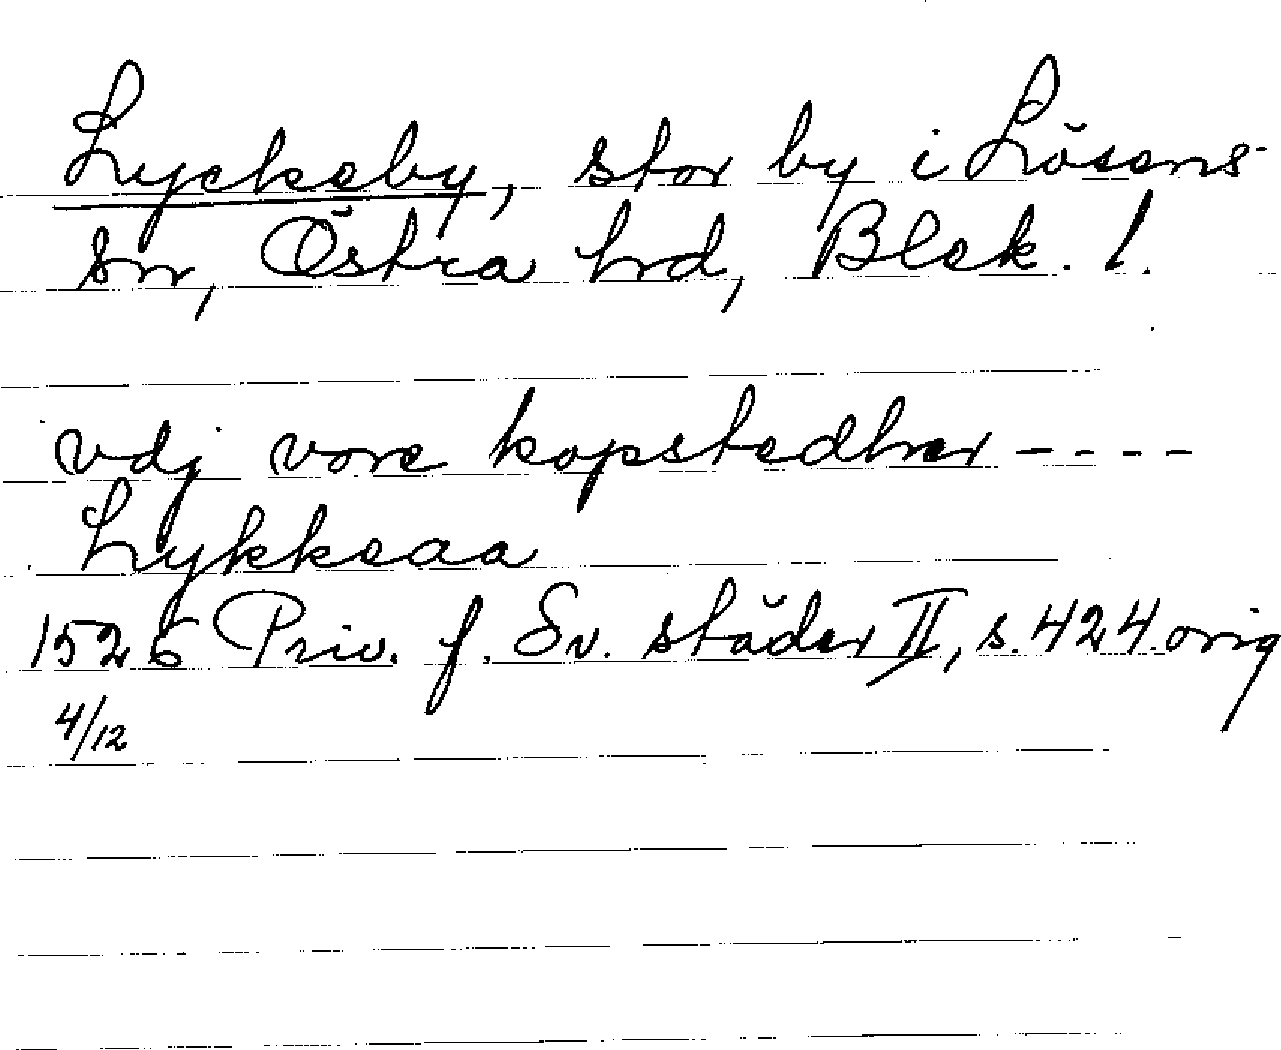 Lyckeby, stor by i Lösens
sn, Östra hrd, Blek. l.
vdj vore kopstedher - - - -
Lykkeaa
1526 Priv. f. Sv. städer II, s. 424. orig
4/12